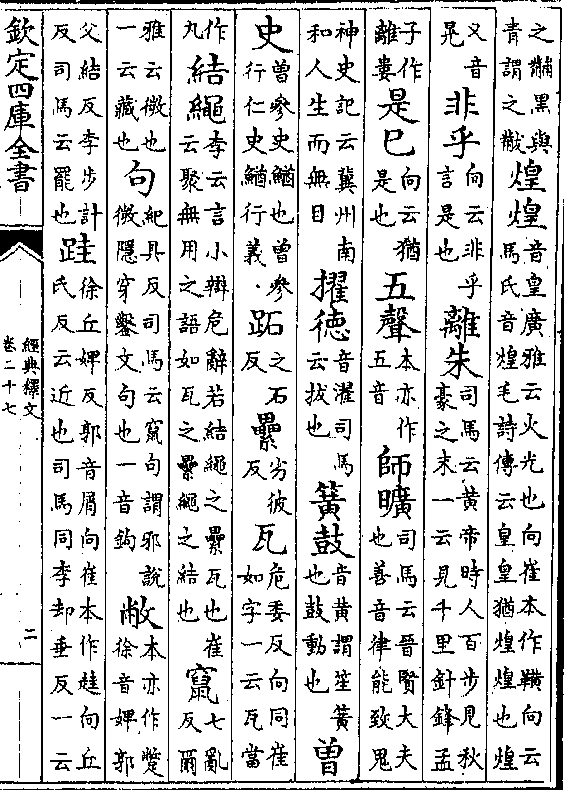 之黼黑與青謂之黻煌煌音皇廣雅云火光也向崔本作䪄向云馬氏音煌毛詩傳云皇皇猶煌煌也煌
又音晃非乎向云非乎言是也離朱司馬云黃帝時人百步見秋豪之末一云見千里針鋒孟
子作離婁是已向云猶是也五聲本亦作五音師曠司馬云晉賢大夫也善音律能致鬼
神史記云冀州南和人生而無目擢德音濯司馬云拔也簧鼓音黃謂笙簧也鼓動也曾
史曾參史鰌也曾參行仁史鰌行義跖之石反纍劣彼反瓦危委反向同崔如字一云瓦當
作丸結繩李云言小辯危辭若結繩之纍瓦也崔云聚無用之語如瓦之纍繩之結也竄七亂反爾
雅云微也一云藏也句紀具反司馬云竄句謂邪說微隱穿鑿文句也一音鉤敝本亦作蹩徐音婢郭
父結反李步計反司馬云罷也跬徐丘婢反郭音屑向崔本作娃向丘氏反云近也司馬同李却垂反一云
欽定四庫全書
經典釋文
卷二十七
二